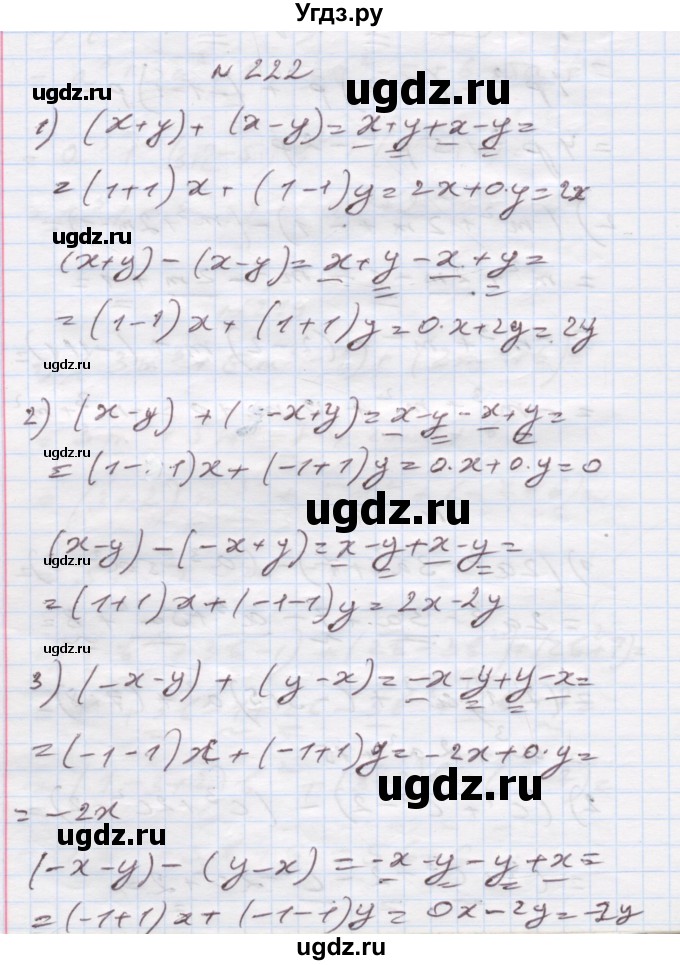 Угдз.ру
N 222
ugdz.ru
ugdz.ru
1) (x+y) + (x-y) = x+y+x-y =
= (1+1)x + (1-1)y = 2x+0·y = 2x
ugdz.ru
(x+y) - (x-y) = x+y-x+y =
= (1-1)x + (1+1)y = 0·x+2y = 2y
ugdz.ru
2) (x-y) + (-x+y) = x-y-x+y =
= (1-1)x + (-1+1)y = 0·x+0·y = 0
ugdz.ru
ugdz.ru
(x-y) - (-x+y) = x-y+x-y =
= (1+1)x + (-1-1)y = 2x-2y
ugdz.ru
3) (-x-y) + (y-x) = -x-y+y-x =
= (-1-1)x + (-1+1)y = -2x+0·y =
ugdz.ru
= -2x
ugdz.ru
(-x-y) - (y-x) = -x-y-y+x =
= (-1+1)x + (-1-1)y = 0x-2y = -2y
ugdz.ru